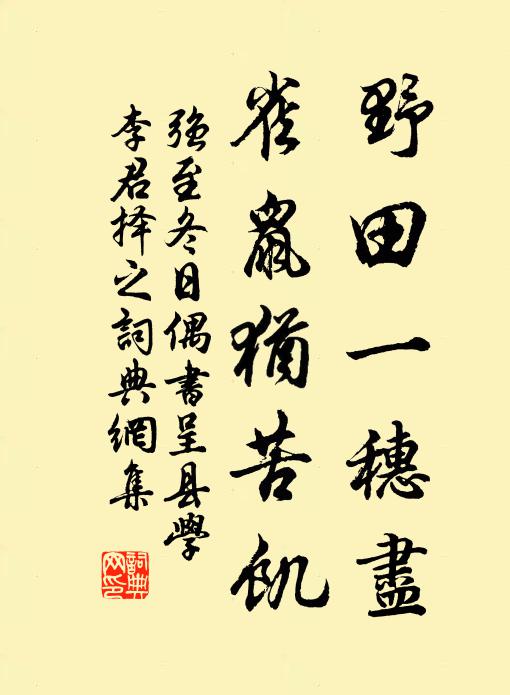 野田一穗盡
雀鼠猶苦飢
强至冬日偶書呈县學
李君择之詞典網集
詞典网印